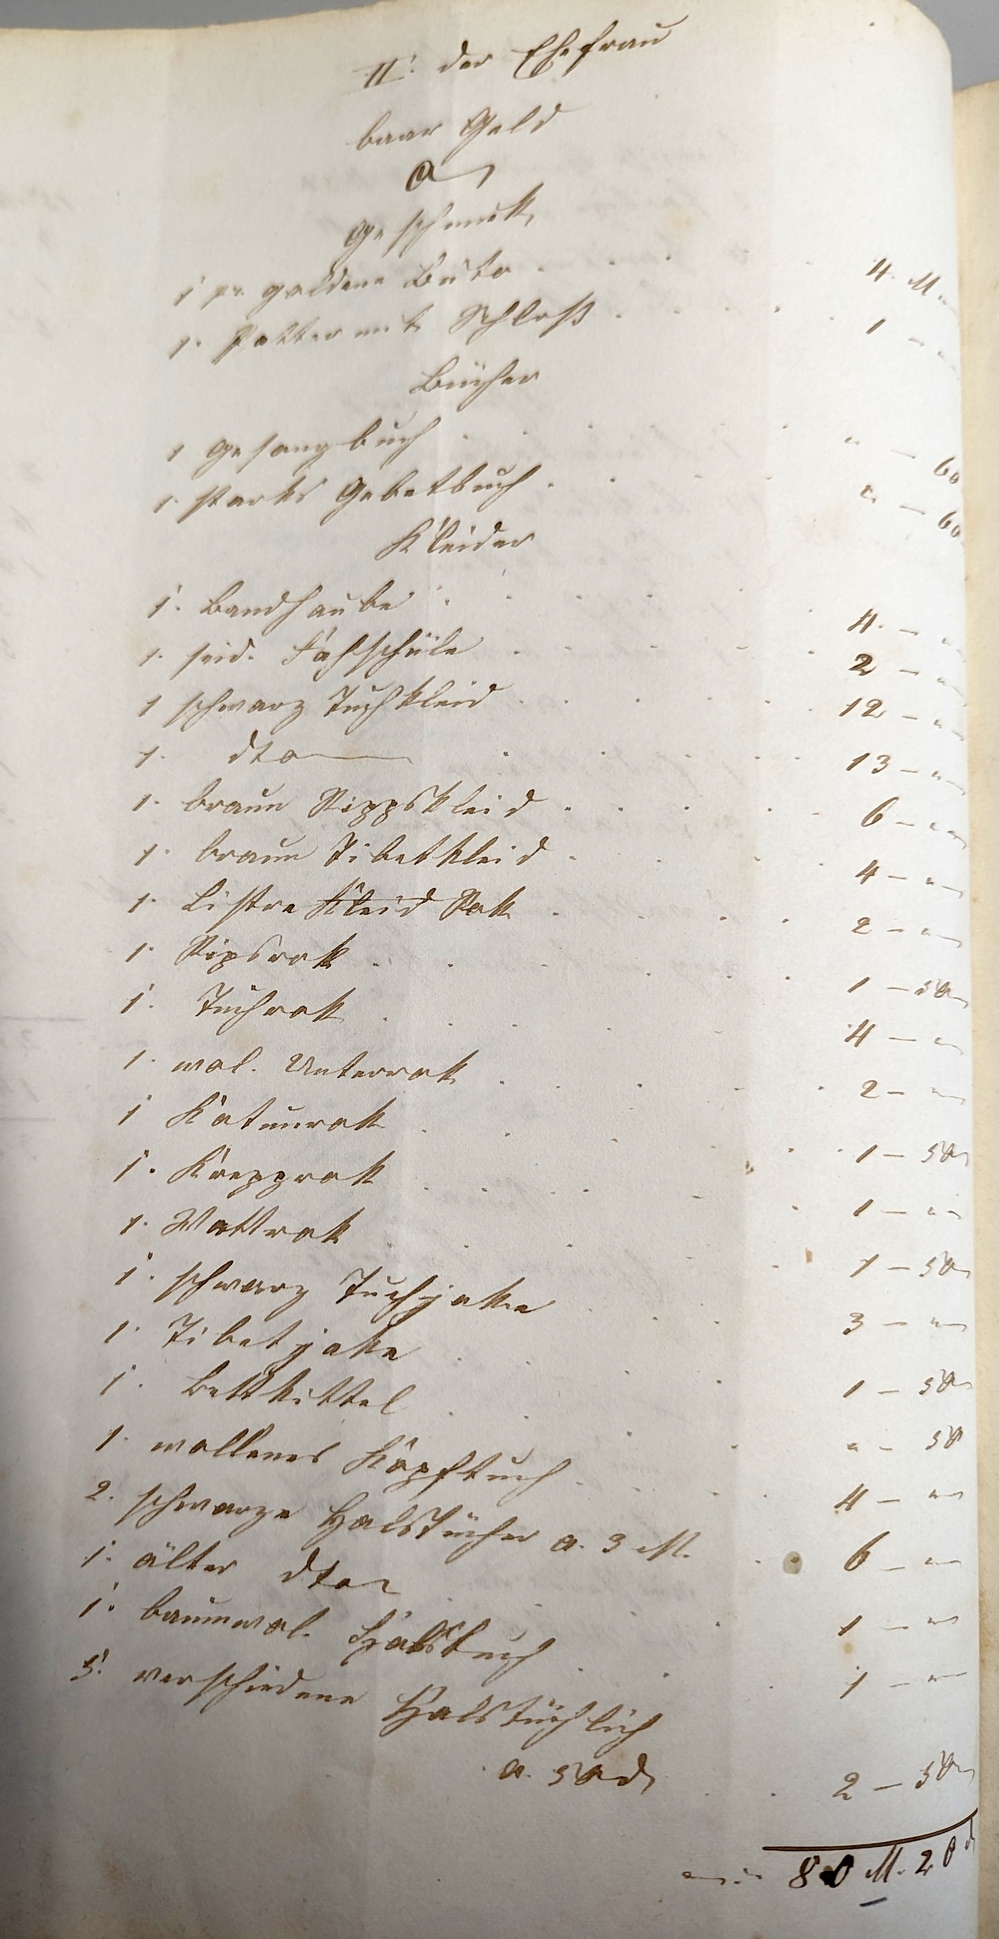 II. der Ehefrau
baar Geld
0
Geschmuk
1 pr. goldene 4 M. "
1. Patter mit Schloß 1 - "
Bücher
1 Gesangbuch " - 60
1. Starks Gebetbuch " - 60
Kleider
1. Bandhaube 4 - "
1. seid. 2 - "
1 schwarz Tuchkleid 12 - "
1. dto 13 - "
1. braun Rippskleid 6 - "
1. braun Tibetkleid 4 - "
1. Listre Kleid Rok 2 - "
1. Ripsrok 1 - 50
1. Tuchrok 4 - "
1. wol. Unterrok 2 - "
1 Katunrok 1 - 50
1. Krepprok 1 - "
1. Wattrok 1 - 50
1. schwarz Tuchjake 3 - "
1. Tibetjake 1 - 50
1. Bettkittel " - 50
1. wollenes Kopftuch 4 - "
2. schwarze Halstücher a. 3 M. 6 - "
1. älter dto 1 - "
1. baumwol. Halstuch 1 - "
5. verschiedene Halstüchlich
a. 50 d 2 - 50
80 M. 20 d